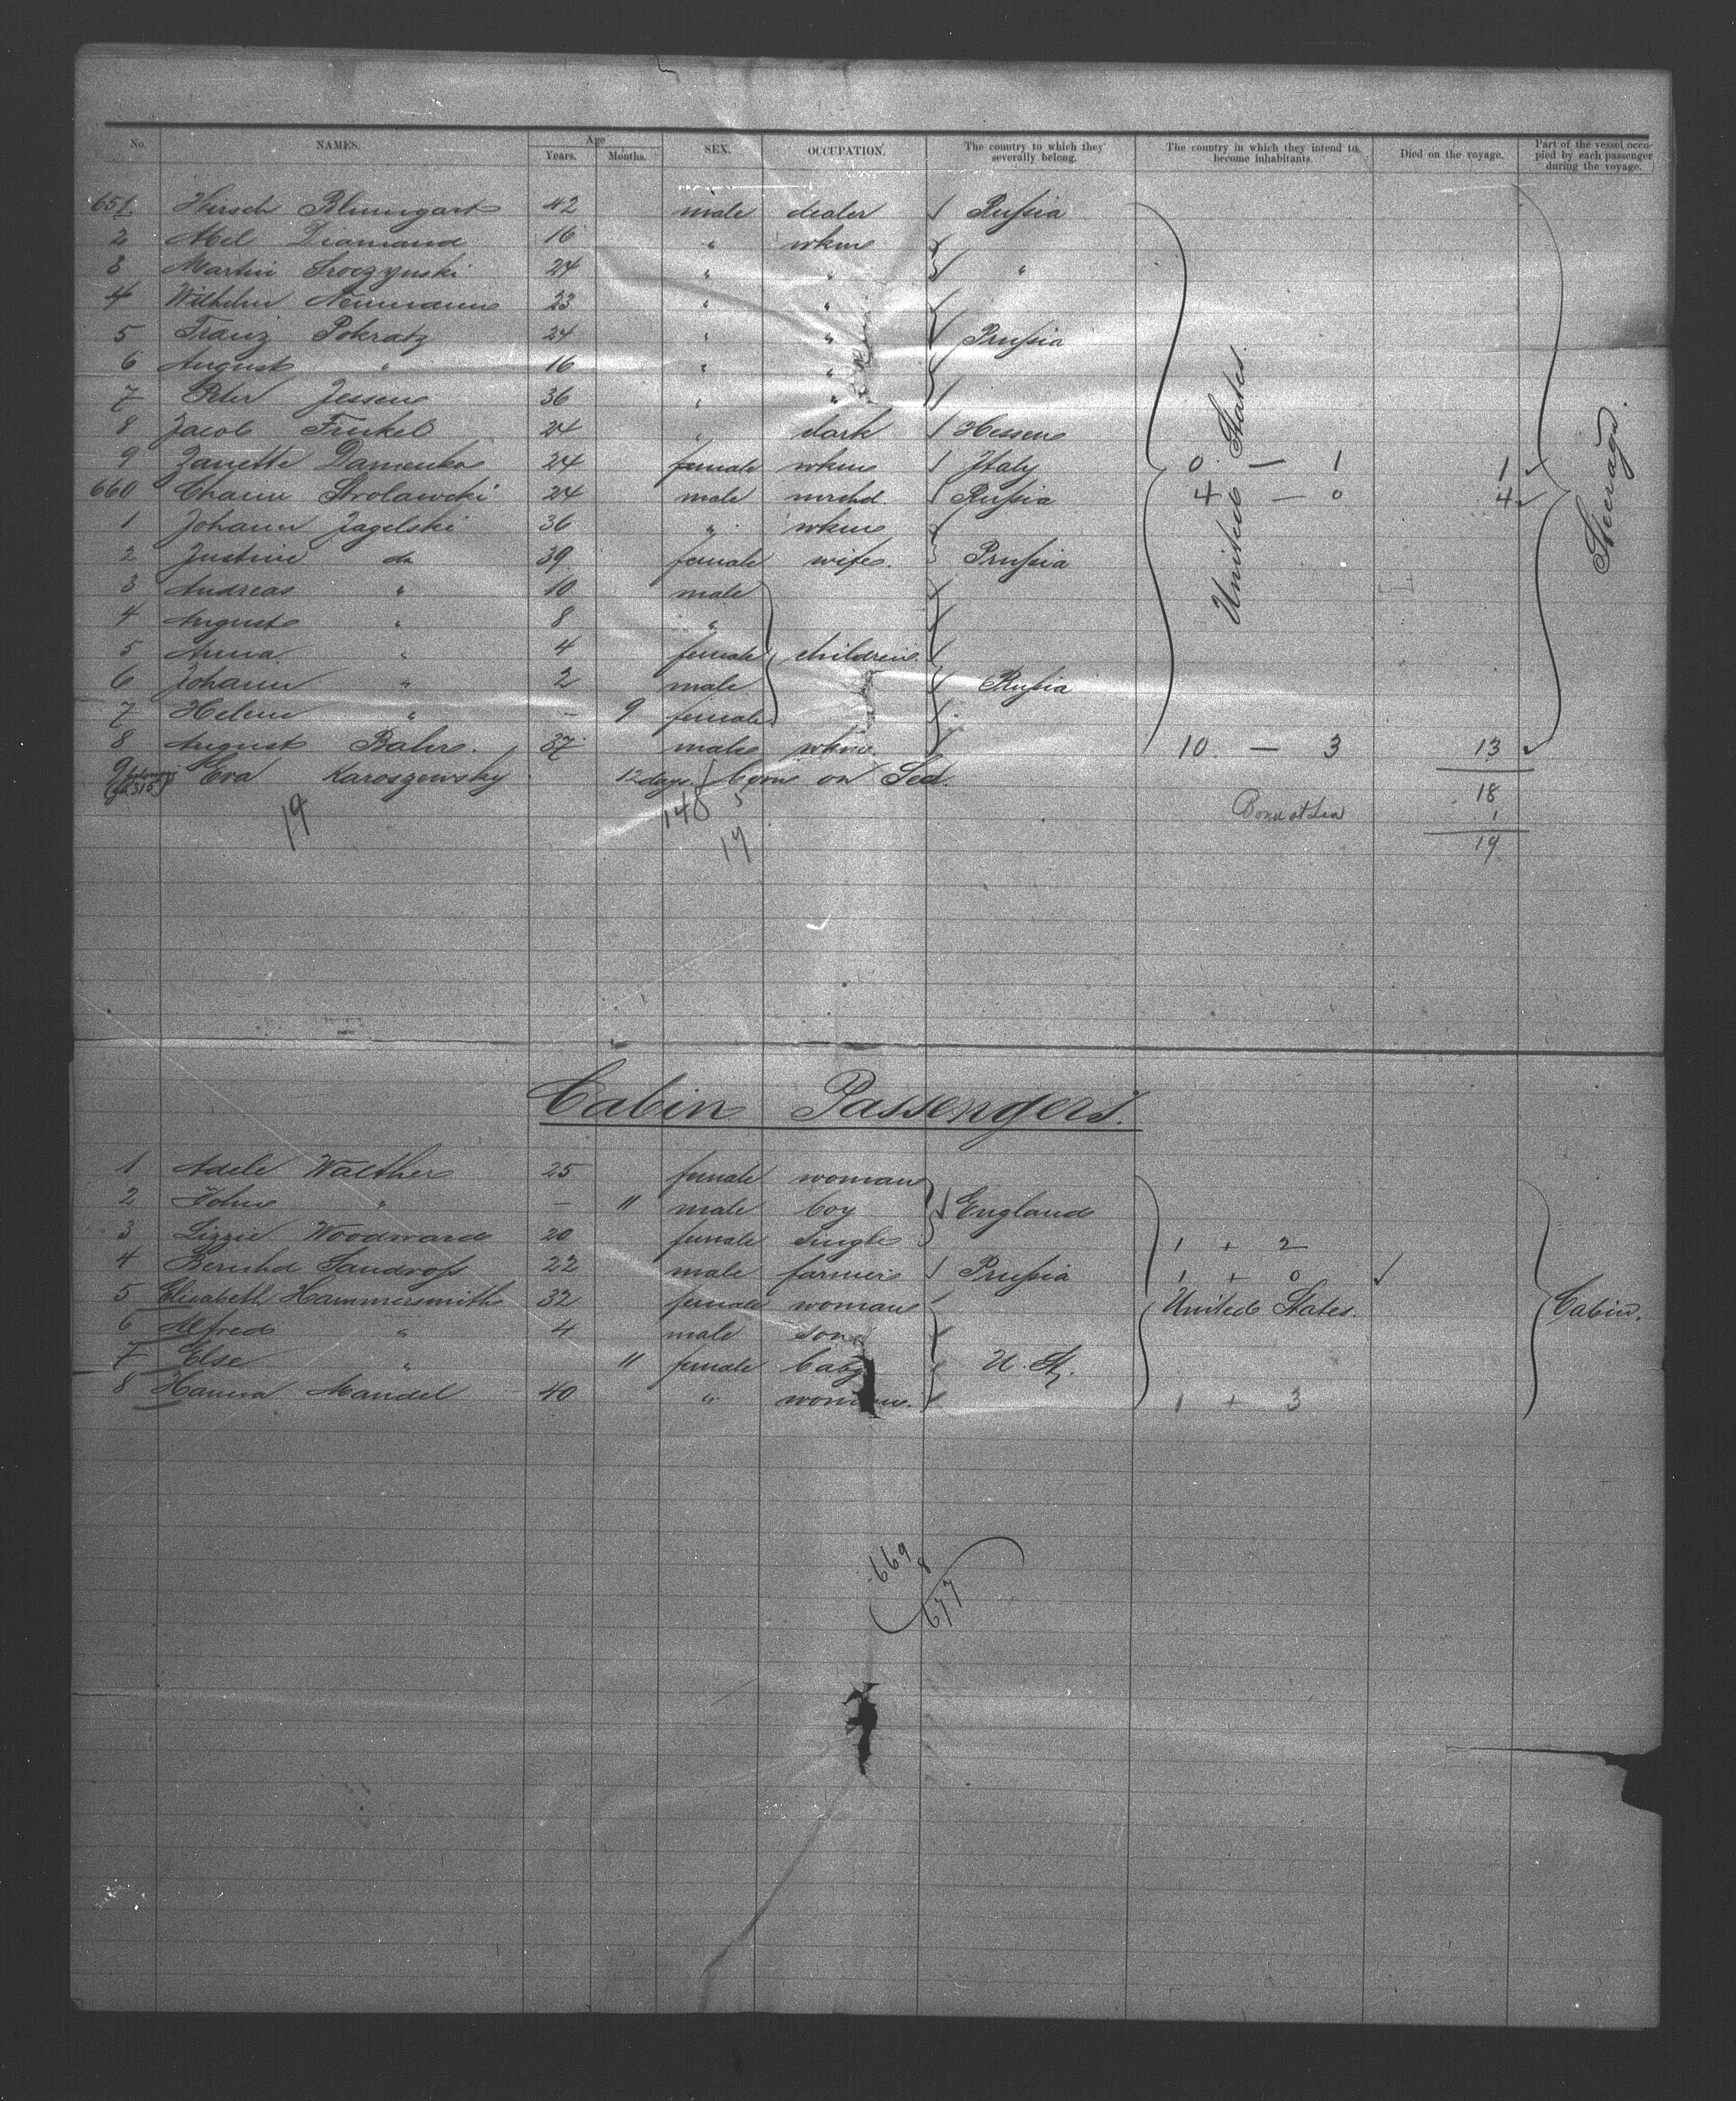 No. NAMES. Age Years. Months. SEX. OCCUPATION. The country to which they severally belong. The country in which they intend to become inhabitants. Died on the voyage. Part of the vessel occupied by each passenger during the voyage.
651 Hersch Blumgart 42 male dealer Russia
2 Abel Diamand 16 " wkm
3 Martin Sroczynski 24 " " "
4 Wilhelm Neumann 23 " "
5 Franz Pokratz 24 " " Prussia
6 August " 16 " "
7 Peter Jessen 36 " "
8 Jacob Frukel 24 " clark Hessen
9 Zanette Damenka 24 female wkm Italy 0 — 1 1
660 Chaim Strolawski 24 male mrchd Russia 4 — 0 4
1 Johann Jagelski 36 " wkm
2 Justine do 39 female wife Prussia
3 Andreas " 10 male
4 August " 8 "
5 Anna " 4 female children
6 Johann " 2 male Russia
7 Helene " - 9 female
8 August Bahr. 37 male wkm 10 — 3 13
United States.
Steerage.
9 Eva Karoszewsky 12 days born on Sea.
(belongs to 315)
18
Born at Sea 1
19
19 148 5
19
Cabin Passengers.
1 Adele Walther 25 female woman
2 John " - 11 male boy England
3 Lizzie Woodward 20 female single 1 + 2
4 Bernhd Sandross 22 male farmer Prussia 1 + 0
5 Elisabeth Hammersmith 32 female woman United States. Cabin.
6 Alfred " 4 male son
7 Else " 11 female baby U. St.
8 Hanna Mandel 40 " woman. 1 + 3
669
8
677